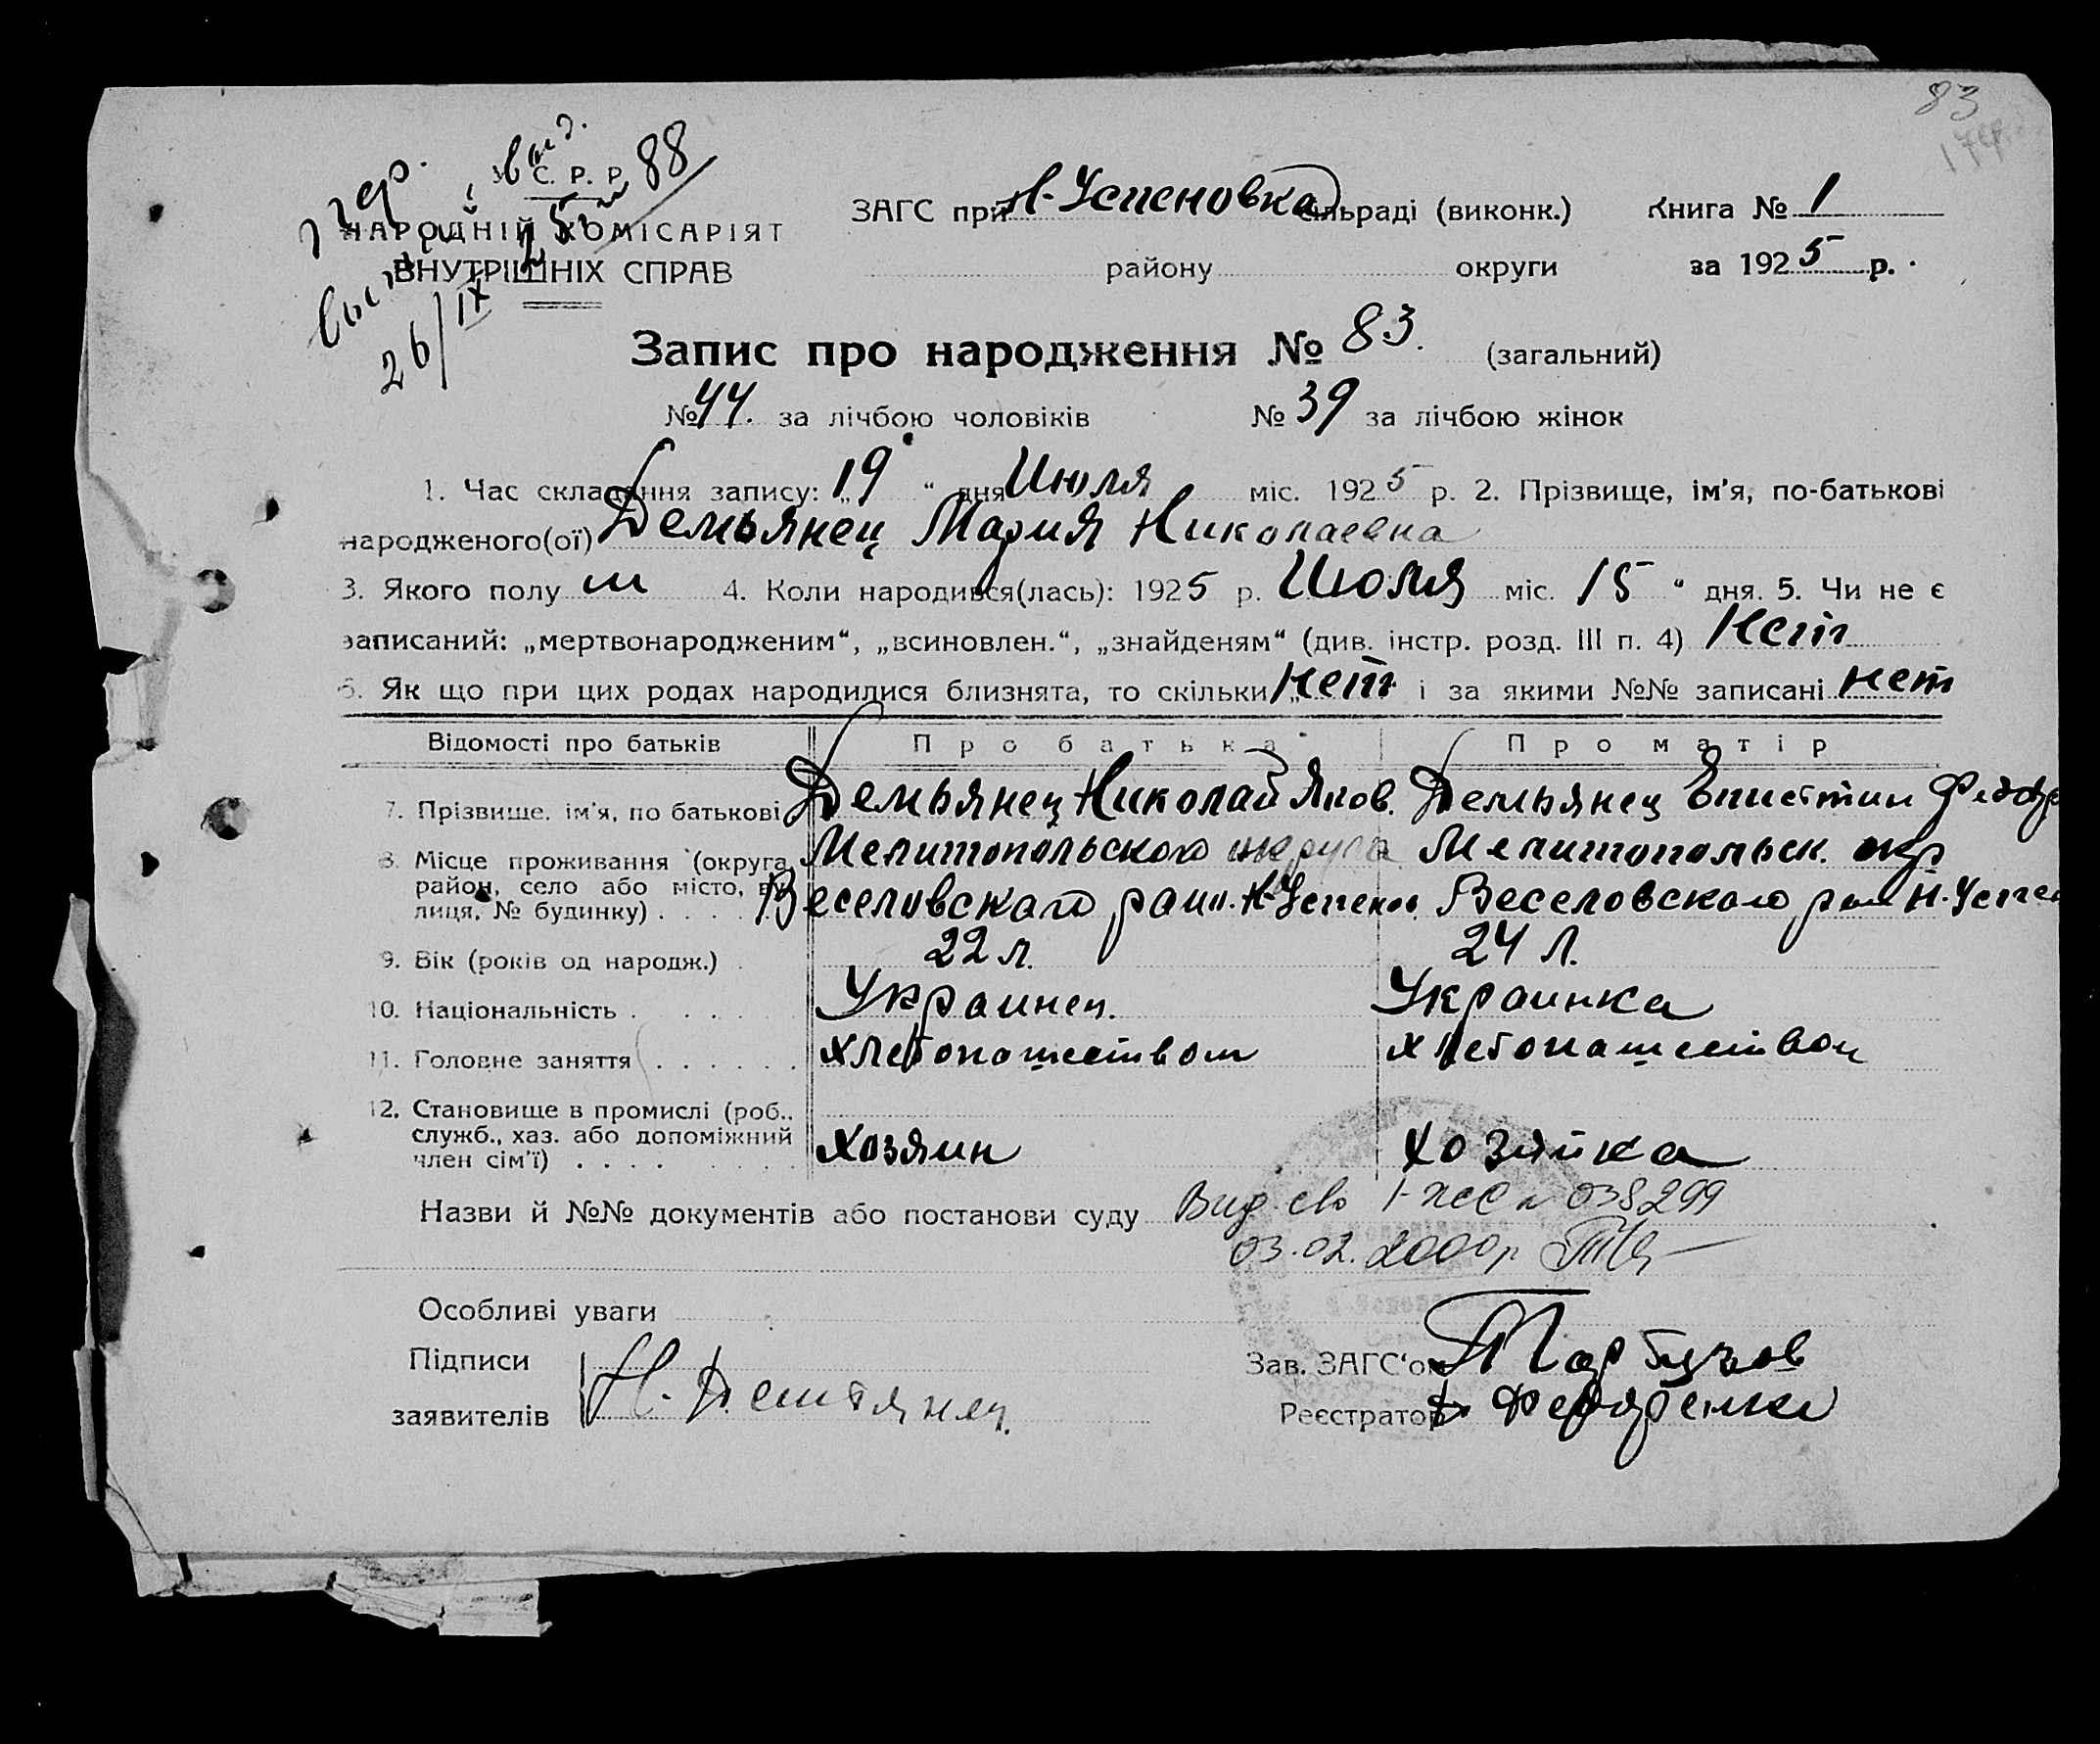 83
С. Р. Р. 88
НАРОДНІЙ КОМІСАРІЯТ
ВНУТРІШНІХ СПРАВ
26/IX
ЗАГС при Н-Успеновка сільраді (виконк.) Книга № 1
району округи за 1925 р.
Запис про народження № 83. (загальний)
№ 44. за лічбою чоловіків № 39 за лічбою жінок
1. Час складання запису: „19“ дня Июля міс. 1925 р. 2. Прізвище, ім’я, по-батькові
народженого(ої) Демьянец Мария Николаевна
3. Якого полу 4. Коли народився(лась): 1925 р. Июля міс. 15 “ дня. 5. Чи не є
записаний: „мертвонародженим“, „всиновлен.“, „знайденям“ (див. інстр. розд. III п. 4) Нет
6. Як що при цих родах народилися близнята, то скільки „ нет і за якими №№ записані нет
Відомості про батьків Про батька Про матір
7. Прізвище, ім’я, по батькові Демьянец Николай Яков. Демьянец Епистин Федор
8. Місце проживання (округа, Мелитопольского округа Мелитопольск. окр
район, село або місто, ву-
лиця, № будинку) . . . . Веселовского раио. Н-Успенов. Веселовского Н. Успен
9. Вік (років од народж.) . 22 л. 24 л.
10. Національність . . . . . . Украинец. Украинка
11. Головне заняття . . . . . . хлебопашеством хлебопашеством
12. Становище в промислі (роб.,
служб., хаз. або допоміжний
член сім’ї) . . . . . . . . хозяин хозяйка
Назви й №№ документів або постанови суду Вид. 038299
03.02.2000р
Особливі уваги
Підписи
заявителів Н. Демьянец.
Зав. ЗАГС‘ом
Реєстратор Федоренко